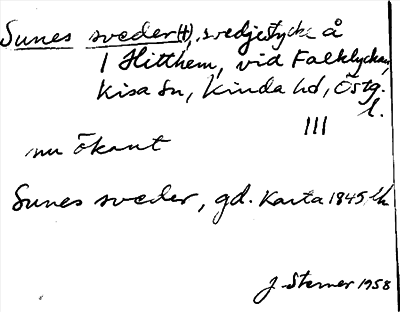 Sunes sveder(t), svedjestycke å
1 Hitthem, vid Falklyckan,
Kisa sn, Kinda hd, Östg.
l.
III
nu ökant
Sunes sveder, gd. Karta 1845
J. Sterner 1958